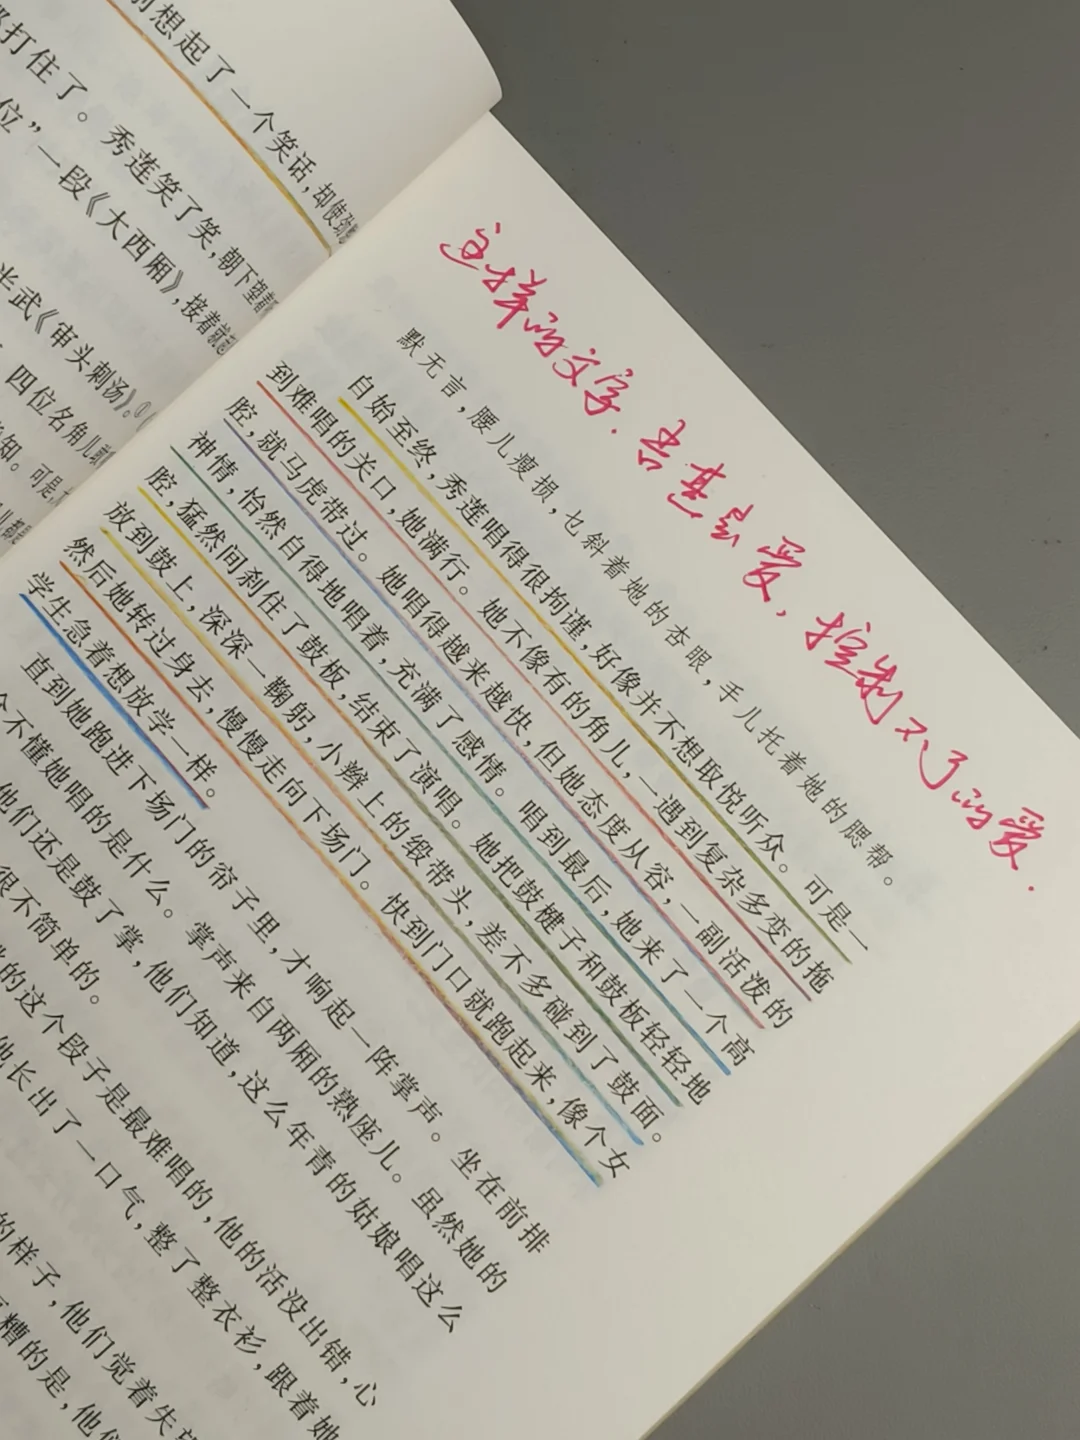 前想起了一个笑话，却使劲
打住了。秀莲笑了笑，朝下望着
位”一段《大西厢》，接着就
半武《审头刺汤》。①
四位名角儿
知。可是
这样的文字．吾甚是爱，控制不了的爱．
默无言，腰儿瘦损，乜斜着她的杏眼，手儿托着她的腮帮。
自始至终，秀莲唱得很拘谨，好像并不想取悦听众。可是一
到难唱的关口，她满行。她不像有的角儿，一遇到复杂多变的拖
腔，就马虎带过。她唱得越来越快，但她态度从容，一副活泼的
神情，怡然自得地唱着，充满了感情。唱到最后，她来了一个高
腔，猛然间刹住了鼓板，结束了演唱。她把鼓楗子和鼓板轻轻地
放到鼓上，深深一鞠躬，小辫上的缎带头，差不多碰到了鼓面。
然后她转过身去，慢慢走向下场门。快到门口就跑起来，像个女
学生急着想放学一样。
直到她跑进下场门的帘子里，才响起一阵掌声。坐在前排
不懂她唱的是什么。掌声来自两厢的熟座儿。虽然她的
他们还是鼓了掌，他们知道，这么年青的姑娘唱这么
很不简单的。
的这个段子是最难唱的，他的活没出错，心
他长出了一口气，整了整衣衫，跟着她
的样子，他们觉着失望
糟的是，他们